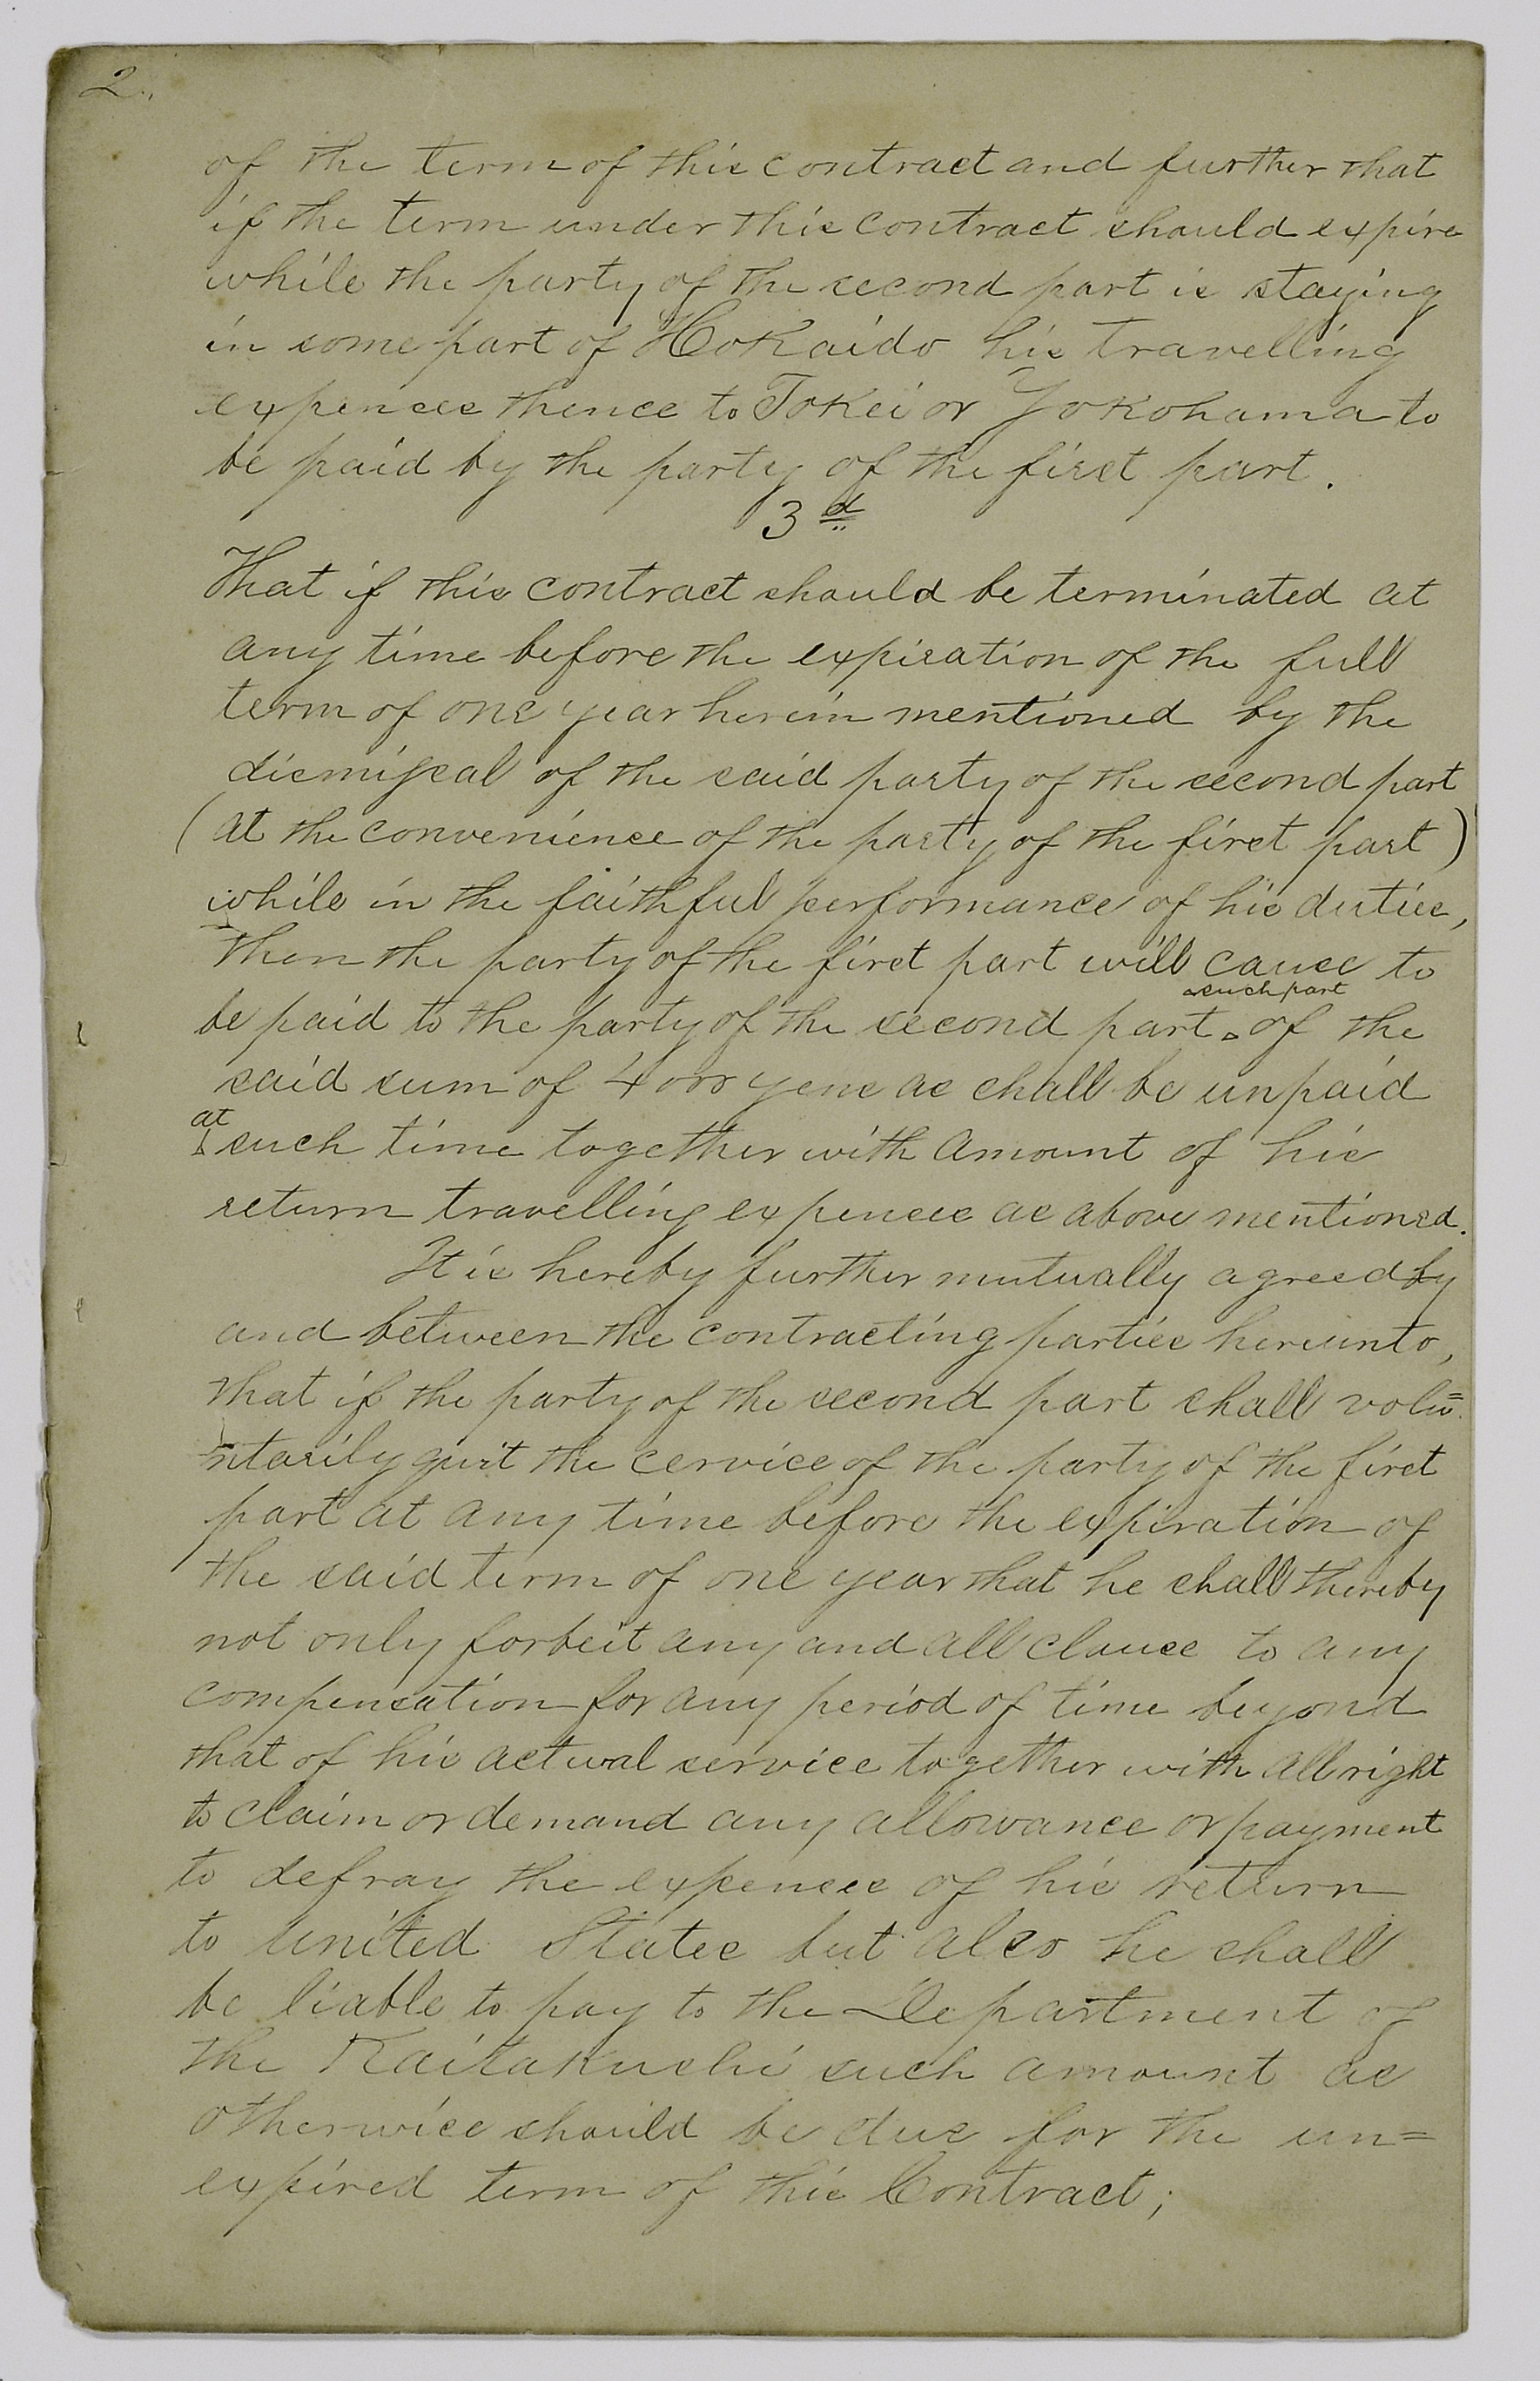 2.
of the term of this contract and further that
if the term under this contract should expire
while the party of the second part is staying
in some part of Hokaido his travelling
expenses thence to Tokei or Yokohama to
be paid by the party of the first part.
3d
That if this contract should be terminated at
any time before the expiration of the full
term of one year herein mentioned by the
dismissal of the said party of the second part
(at the convenience of the party of the first part)
while in the faithful performance of his duties,
then the party of the first part will cause to
such part
be paid to the party of the second part of the
said sum of 4000 yens as shall be unpaid
at
such time together with amount of his
return travelling expenses as above mentioned.
It is hereby further mutually agreed by
and between the contracting parties hereunto,
that if the party of the second part shall volu=
ntarily quit the service of the party of the first
part at any time before the expiration of
the said term of one year that he shall thereby
not only forbeit any and all clause to any
compensation for any period of time beyond
that of his actual service together with all right
to claim or demand any allowance or payment
to defray the expenses of his return
to united States but also he shall
be liable to pay to the Department of
the Kaitakushi such amount as
otherwise should be due for the un=
expired term of this Contract;